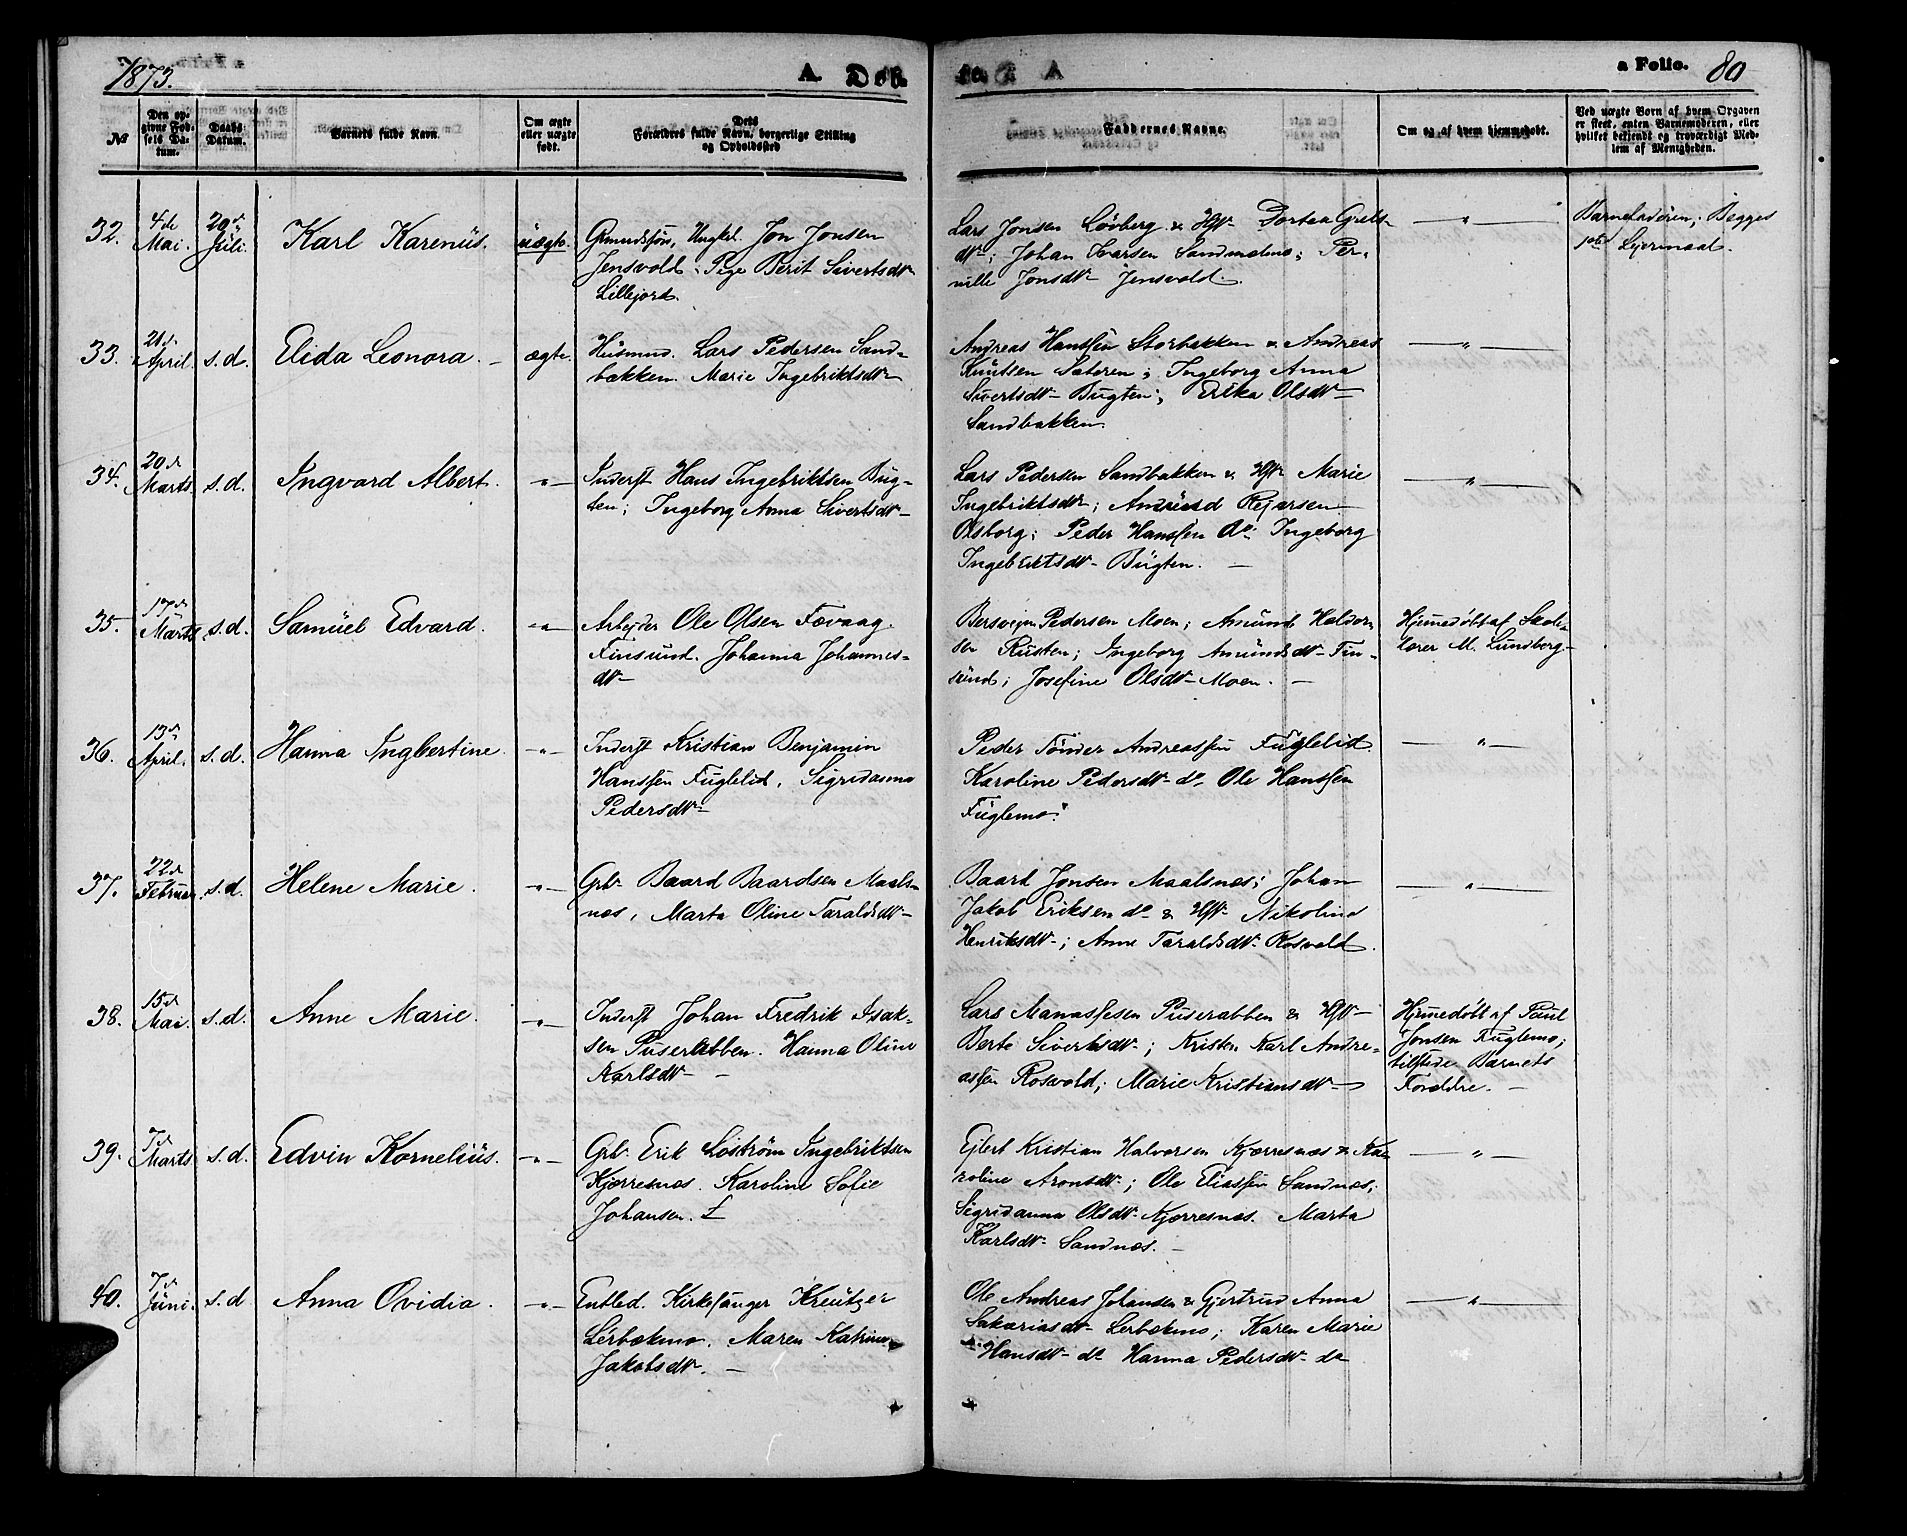 1873.
A. Døb
te. A
a Folio. 80
№
Den opgivne Fødsels Datum.
Daabs Datum.
Barnets fulde Navn.
Om ægte eller uægte født.
Dets Forældres fulde Navn, borgerlige Stilling og Opholdssted
Faddernes Navne.
Om og af hvem hjemmedøbt.
Ved uægte Børn af hvem Opgaven er skeet, enten Barnemoderen, eller hvilket bekjendt og troværdigt Medlem af Menigheden.
32. 4de Mai. 20de Juli. Karl Karenüs. uægte. Gmandssøn, Ungkl. Jon Jonsen
Jensvold. Pige Berit Sivertsdtr
Lillejord.
Lars Jonsen Løvberg & Hst. Dortea
dtr; Johan Larsen Sandmelmo; Per-
nille Jonsdtr Jensvold.
— " —
Barnefaderen; Begges
1ste Leiermaal.
33. 21de April. s.d. Elida Leonora. – ægte. Husmnd. Lars Pedersen Sand-
bakken. Marie Ingebriktsdtr
Andreas Hanssen Storbakken & Andreas
Knutsen Sæteren; Ingeborg Anna
Sivertsdtr Bugten; Erika Olsdtr
Sandbakken.
— " —
34. 20de Marts s.d. Ingvard Albert. –"– Inderst Hans Ingebriktsen Bug-
ten; Ingeborg Anna Sivertsdtr
Lars Pedersen Sandbakken & Hst. Marie
Ingebriktsdtr;
Olsborg; Peder Hanssen do. Ingeborg
Ingebriktsdtr Bugten. —
— " —
35. 17de Marts s.d. Samüel Edvard. –"– Arbejder Ole Olsen Fævaag
Finsund. Johanna Johannes-
dtr
Bersvejn Pedersen Moen; Amund Haldor-
sen Rusten; Ingeborg Amundsdtr Fin-
sund; Josefine Olsdtr Moen. —
Hjemmedøbt af Skole-
lærer M. Lundberg
36. 13de April. s.d. Hanna Ingbertine. –"– Inderst Kristian Benjamin
Hanssen Fuglelid, Sigridanna
Pedersdtr
Peder Tønder Andreassen Fuglelid
Karoline Pedersdtr do Ole Hanssen
Fuglemo.
— " —
37. 22de Februar s.d. Helene Marie. –"– Grbr Baard Baardsen Maals-
nes, Marta Oline Taraldsdtr
Baard Jonsen Maalsnes; Johan
Jakob Eriksen do & Hst. Nikoline
Henriksdtr; Anne Taraldsdtr Rosvold.
— " —
38. 15de Mai s.d. Anne Marie. –"– Inderst Johan Fredrik Isak-
sen Puserabben. Hanna Oline
Karlsdtr –
Lars Manassesen Puserabben & Hst
Berte Sivertsdtr; Kristen Karl Andre-
assen Rosvold; Marie Kristiansdtr
Hjemmedøbt af Paul
Jonsen Fuglemo;
tilstede Barnets
Forældre. –
39. 7de Marts s.d. Edvin Kornelius. –"– Grbr Erik Søstrøm Ingebriktsen
Kjærresnes. Karoline Sofie
Johansen.
Ejlert Kristian Halvorsen Kjærresnes & Ka-
roline Aronsdtr; Ole Eliassen Sandnes;
Sigridanna Olsdtr Kjærresnes. Marta
Karlsdtr Sandnes. –
— " —
40. 7de Juni. s.d. Anna Ovidia. –"– Entled. Kirkesanger Kreutzer
Lerbekmo. Maren Katrine
Jakobsdtr. —
Ole Andreas Johansen & Gjertrud Anna
Sakariasdtr Lerbekmo; Karen Marie
Hansdtr do Hanna Pedersdtr do
— " —